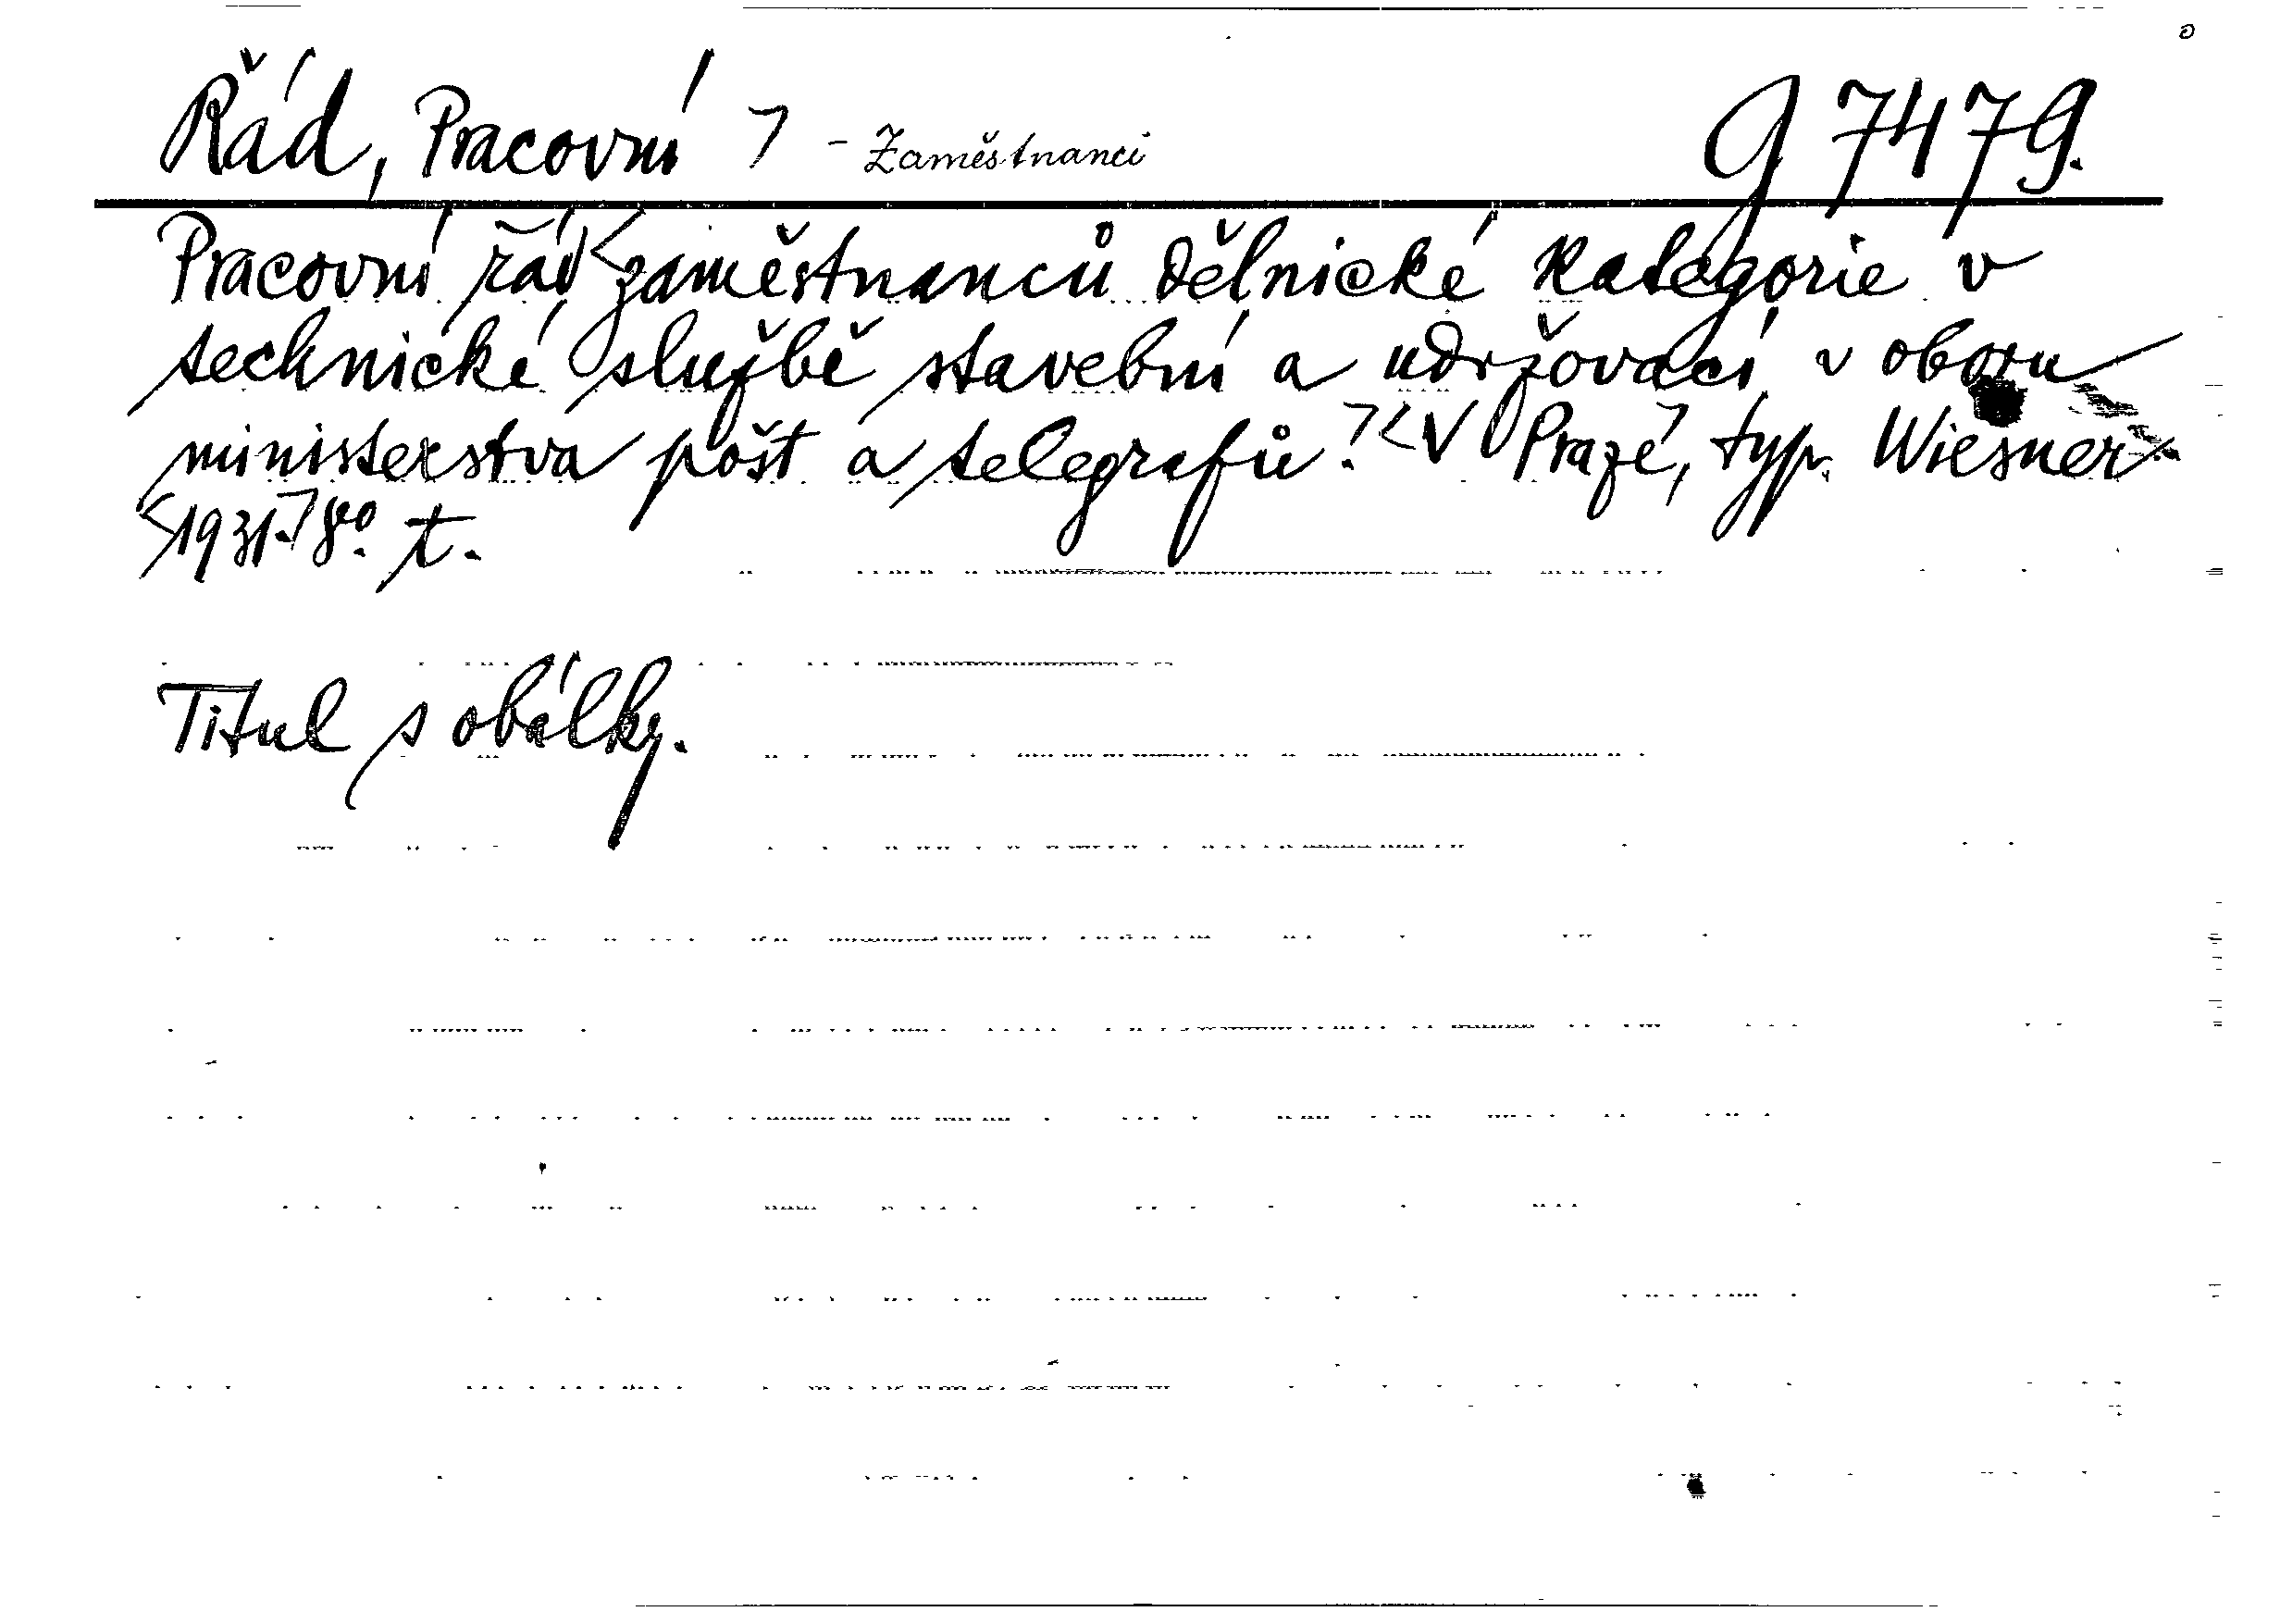 Řád, Pracovní ⁊ - Zaměstnanci g 7479.
Pracovní řád <zaměstnanců dělnické kategorie v
technické službě stavební a udržovací v oboru
ministerstva pošt a telegrafů.⁊ <V Praze⁊, typ. Wiesner
<1931.⁊ 8º. t.
Titul s obálky.